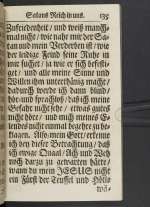 Satans Reich in uns. 135
Zufriedenheit / und weiß manch-
mal nicht / wie nahe mir der Sa-
tan und mein Verderben ist / wie
der leidige Feind seine Ruhe in
mir suchet / ja wie er sich befesti-
get / und alle meine Sinne und
Willen ihm unterthänig mache /
dadurch werde ich dann blind /
daß ich meine
Gefahr nicht sehe / etwas guts
nicht höre / und mich meines E-
lendes nicht einmal begehre zu be-
klagen. Ach mein Gott / erkenne
ich bey dieser Betrachtung / daß
ich ewige Quaal / Ach und Weh
noch darzu zu gewarten hätte /
wann du mein JESUS nicht
ein Fürst der Teuffel und
wä-